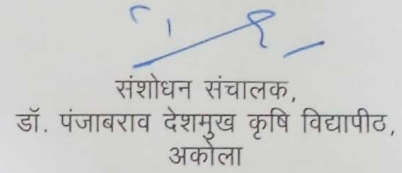 संशोधन संचालक,
डॉ. पंजाबराव देशमुख कृषि विद्यापीठ,
अकोला